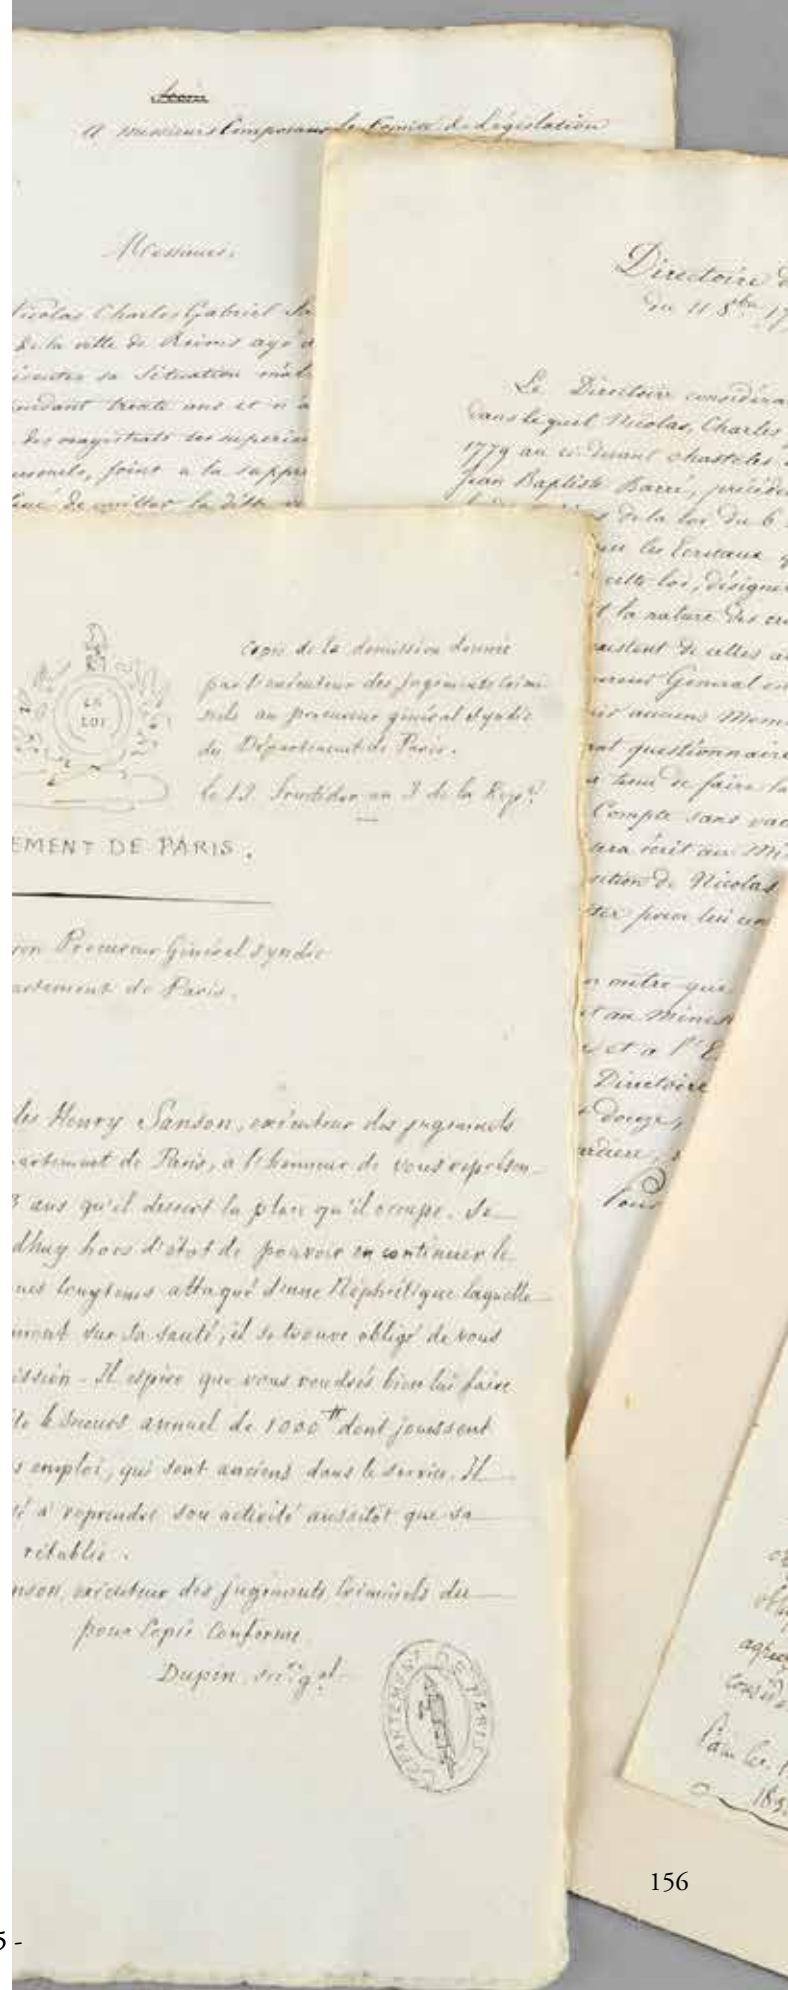 A Messieurs Composant le Comité de Législation
Messieurs.
Nicolas Charles Gabriel
de la ville de Reims ayé
sa Situation
pendant trente ans et n'a
des magistrats ses superieu
joint a la suppre
de quitter la ditte
Directoire d
du 11 8bre 17
Le Directoire considéra
dans lequel Nicolas, Charles
1779 au ci devant chastelet
Jean Baptiste Barré, précéde
de la loi du 6
les Ecriteaux q
cette loi, désigner
la nature des cri
existent de celles
General en
anciens Mem
questionnaire
tenu de faire la
Compte sans vac
sera écrit au Mi
de Nicolas
pour lui
n outre que
et au Minist
et a l'E
Directoire
douze,
Pour
Copie de la démission donnée
par l'exécuteur des Jugements Crimi
nels au procureur général Syndic
du Département de Paris.
le 12 fructidor an 3 de la Repe.
LA
LOI
EMENT DE PARIS.
Procureur Général Syndic
artement de Paris.
les Henry Sanson, exécuteur des jugements
artement de Paris, a l'honneur de vous représen
3 ans qu'il dessert la place qu'il occupe. Se
dhuy hors d'état de pouvoir en continuer le
longtems attaqué d'une Néphrétique laquelle
ment sur sa santé, il se trouve obligé de vous
ission - Il espère que vous voudrés bien lui faire
le secours annuel de 1000 tt dont jouissent
s emploi, qui sont anciens dans le service. Il
é à reprendre son activité aussitôt que sa
rétablie.
nson, exécuteur des jugements Criminels du
pour Copie Conforme
Dupin, secre. gal.
DEPARTEMENT DE PARIS
agréer
considé
156
5 -